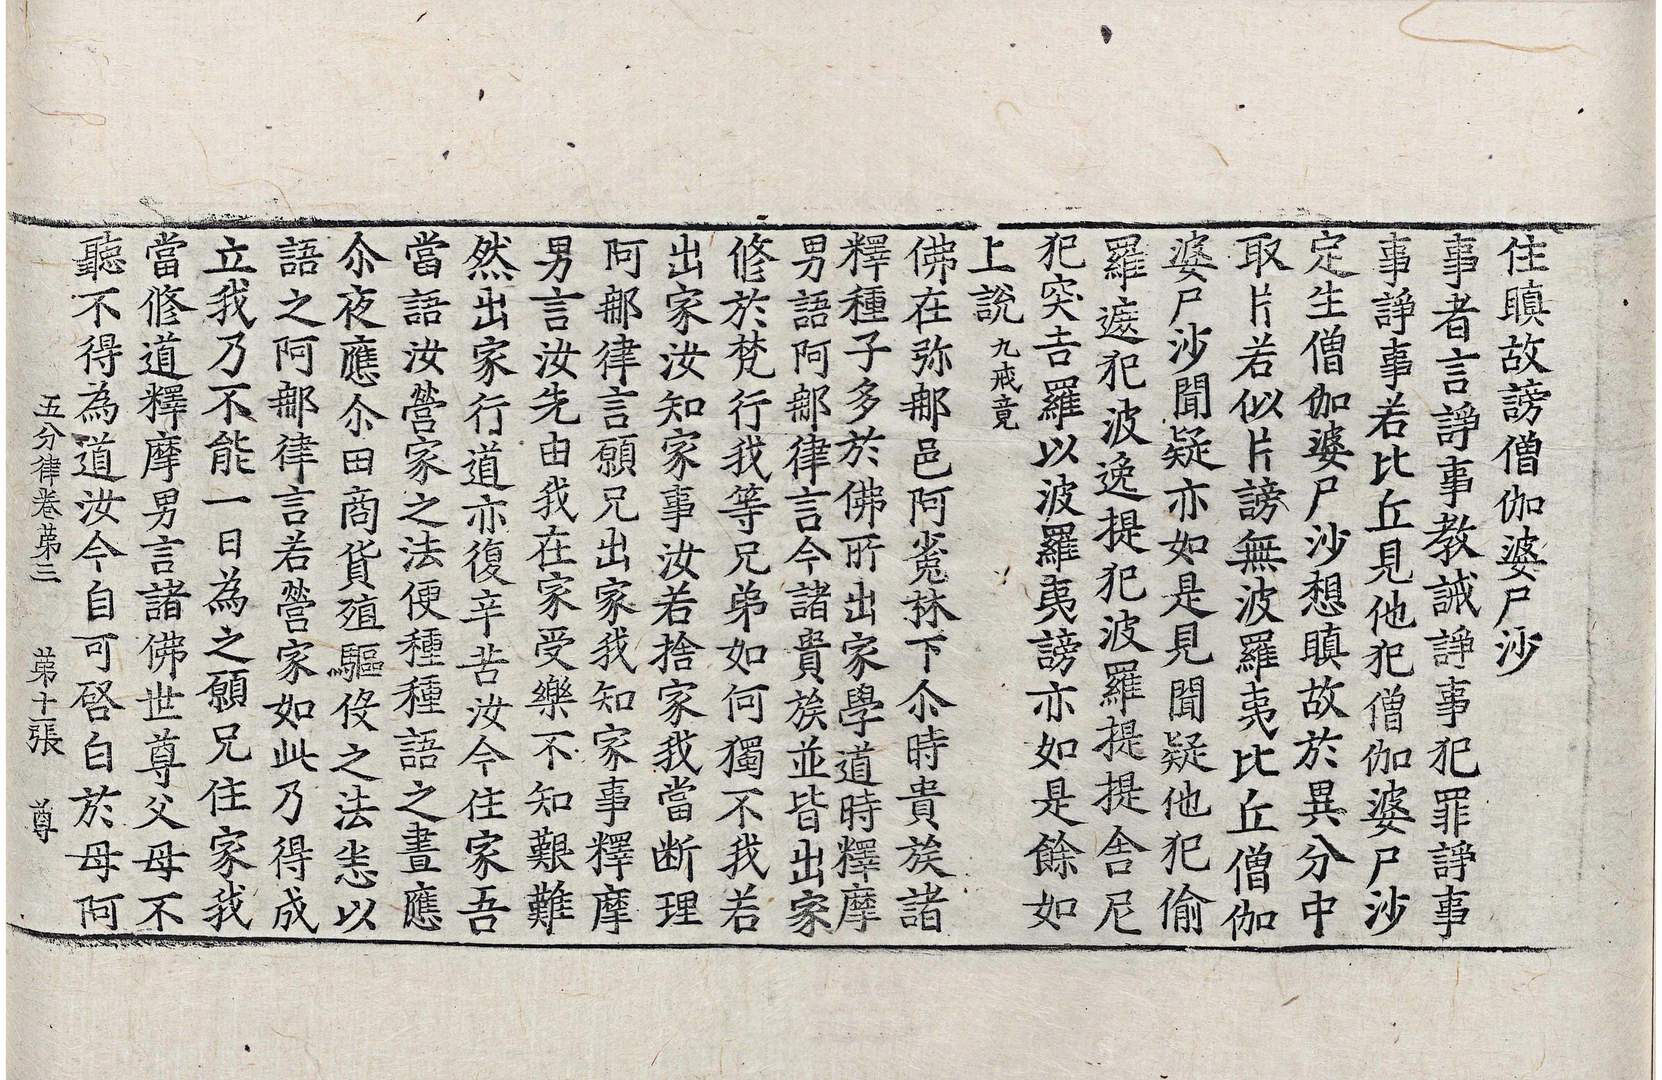 住瞋故謗僧伽婆尸沙
事者言諍事教誡諍事犯罪諍事
事諍事若比丘見他犯僧伽婆尸沙
定生僧伽婆尸沙想瞋故於異分中
取片若似片謗無波羅夷比丘僧伽
婆尸沙聞疑亦如是見聞疑他犯偷
羅遮犯波逸提犯波羅提提舍尼
犯突吉羅以波羅夷謗亦如是餘如
上說九戒竟
佛在弥那邑阿㝹林下尒時貴族諸
釋種子多於佛所出家學道時釋摩
男語阿那律言今諸貴族並皆出家
修於梵行我等兄弟如何獨不我若
出家汝知家事汝若捨家我當断理
阿那律言願兄出家我知家事釋摩
男言汝先由我在家受樂不知艱難
然出家行道亦復辛苦汝今住家吾
當語汝營家之法便種種語之晝應
尒夜應尒田商貨殖驅役之法恚以
語之阿那律言若營家如此乃得成
立我乃不能一日為之願兄住家我
當修道釋摩男言諸佛世尊父母不
聽不得為道汝今自可啓白於母阿
五分律卷苐三 苐十一張 尊